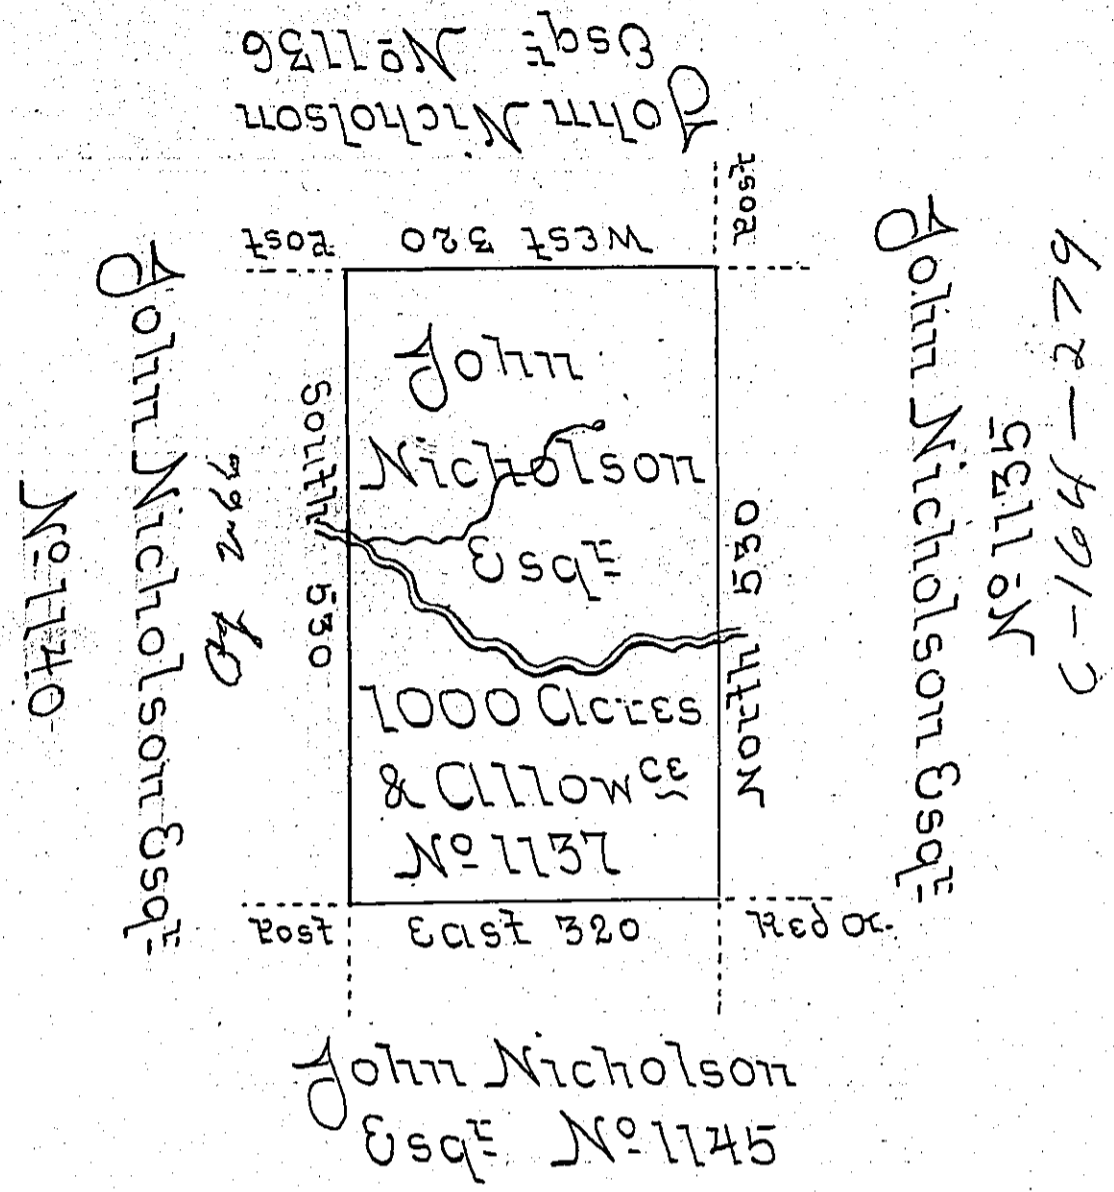 John Nicholson
Esqr No 1136
Post
West 320
Post
John Nicholson Esqr
No 1140
South 530
John
Nicholson
Esqr
1000 Acres
& Allowce
No 1137
North 530
John Nicholson Esqr
No 1135
C-164-279
Post
East 320
Red O.
John Nicholson
Esqr No 1145